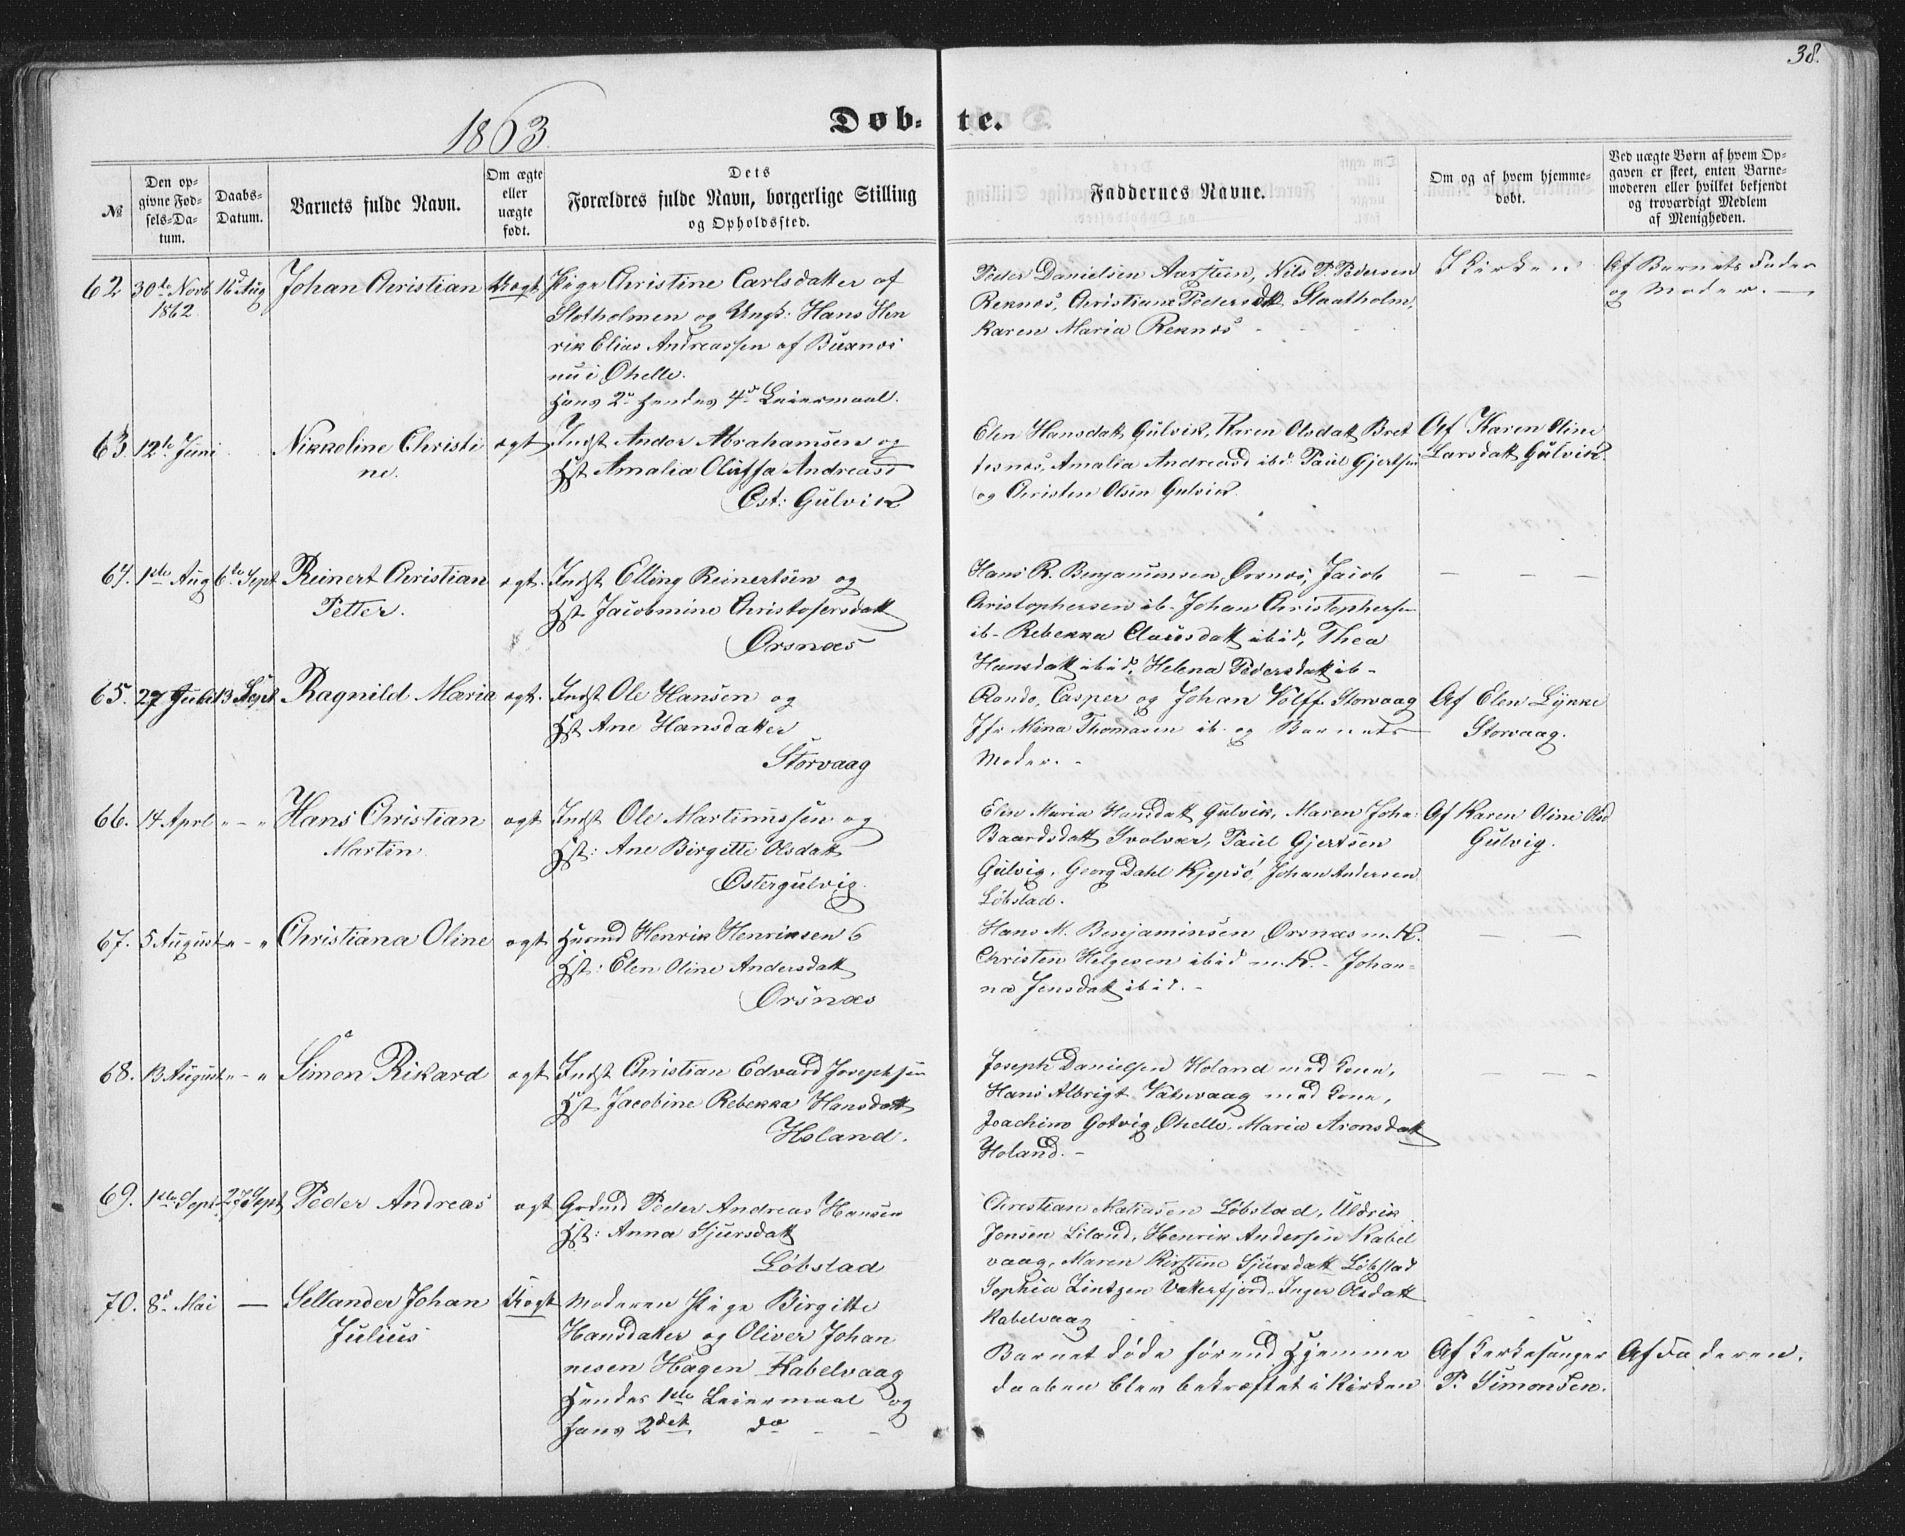 38.
1863.
Døb- te.
№
Den op-
givne Fød-
sels-Da-
tum.
Daabs-
Datum.
Barnets fulde Navn.
Om ægte
eller
uægte
født.
Dets
Forældres fulde Navn, borgerlige Stilling
og Opholdssted.
Faddernes Navne.
Om og af hvem hjemme-
døbt.
Ved uægte Børn af hvem Op-
gaven er skeet, enten Barne-
moderen eller hvilket bekjendt
og troværdigt Medlem
af Menigheden.
62 30te Novb 1862 Aug Johan Christian Uægt
Pige Christine Carlsdatter af
Slotholmen og Ungk: Hans Hen
rik Elias Andreassen af Buxnæs
nu i Øhelle.
Hans 2n Hendes 4d Leiermaal.
Peder Danielsen Aarsteen, Nils P. Pedersen
Reknæs, Christiane Pedersdtt Slaatholm,
Karen Maria Reknæs
I Kirken
Af Barnets Fader
og Moder. —
63. 12te Juni Nikkoline Christi
ne.
ægt.
Indst Andor Abrahamsen og
Hst Amalia Oluffa Andreasd
Øst: Gulvik
Elen Hansdatt Gulvik, Karen Olsdatt Bret
tesnæs, Amalia Andreasd ibid: Paul Gjertsen
og Christen Olsen Gulvik.
Af Karen Oline
Larsdatt Gulvik.
64. 1ste Aug 6te Sept Reinert Christian
Petter.
ægt.
Indst Elling Reinertsen og
Hst Jacobmine Christofersdatt
Ørsnæs
Hans R. Benjaminsen Ørsnæs, Jacob
Christophersen ib- Johan Christophersen
ib- Rebekka Clausdatt ibid, Thea
Hansdatt ibid, Helena Pedersdatt ib-
— — —
65. 27 Juli 13 Sept Ragnild Maria ægt.
Indst Ole Hansen og
Hst Ane Hansdatter
Storvaag
Casper og Johan Volff Storvaag
Jfr Mina Thomasen ib. og Barnets
Moder. -
Af Elen Lynke
Storvaag.
66. 14 Aprl " — " Hans Christian
Martin
ægt
Indst Ole Martinussen og
Hst: Ane Birgitte Olsdatt
Østergulvig.
Elen Maria Hansdatt Gulvik, Maren Joha
Baardsdatt Svolvær, Paul Gjertsen
Gulvig, Georg Dahl Kjepsø, Johan Andersen
Løbstad.
Af Karen Oline Olsd
Gulvig.
67. 5 August " — " Christiana Oline ægt
Husmd Henrik Henriksen
Hst: Elen Oline Andersdatt
Ørsnæs
Hans M. Benjaminsen Ørsnæs m. K.
Christen Helgesen ibid m. K. - Johan-
na Jensdatt ibid. -
— — —
68. 13 August " — " Simon Rikard ægt
Indst Christian Edvard Josephsen
Hst Jacobine Rebekka Hansdatt
Holand.
Joseph Danielsen Holand med Kone,
Hans Albrigt Vatnvaag med Kone,
Joachim Gotvig Øhelle, Maria Aronsdatt
Holand. -
— — —
69. 1ste Sept 27de Sept Peder Andreas ægt
Grdmd Peder Andreas Hansen
Hst: Anna Sjursdatt
Løbstad
Christian Matiasen Løbstad, Uldrik
Jensen Liland, Henrik Andersen Kabel
vaag, Maren Kirstine Sjursdatt Løbstad
Sophia Lintzen Vatterfjord, Inger Olsdatt
Kabelvaag
70. 8de Mai — Sellander Johan
Julius
Uægt
Moderen Pige Birgitte
Hansdatter og Oliver Johan
nesen Hagen Kabelvaag
Hendes 1ste Leiermaal og
hans 2det do - -
Barnet døde førend Hjemme
daaben blev bekræftet i Kirken
Af Kirkesanger
P. Simonsen.
Af Faderen.